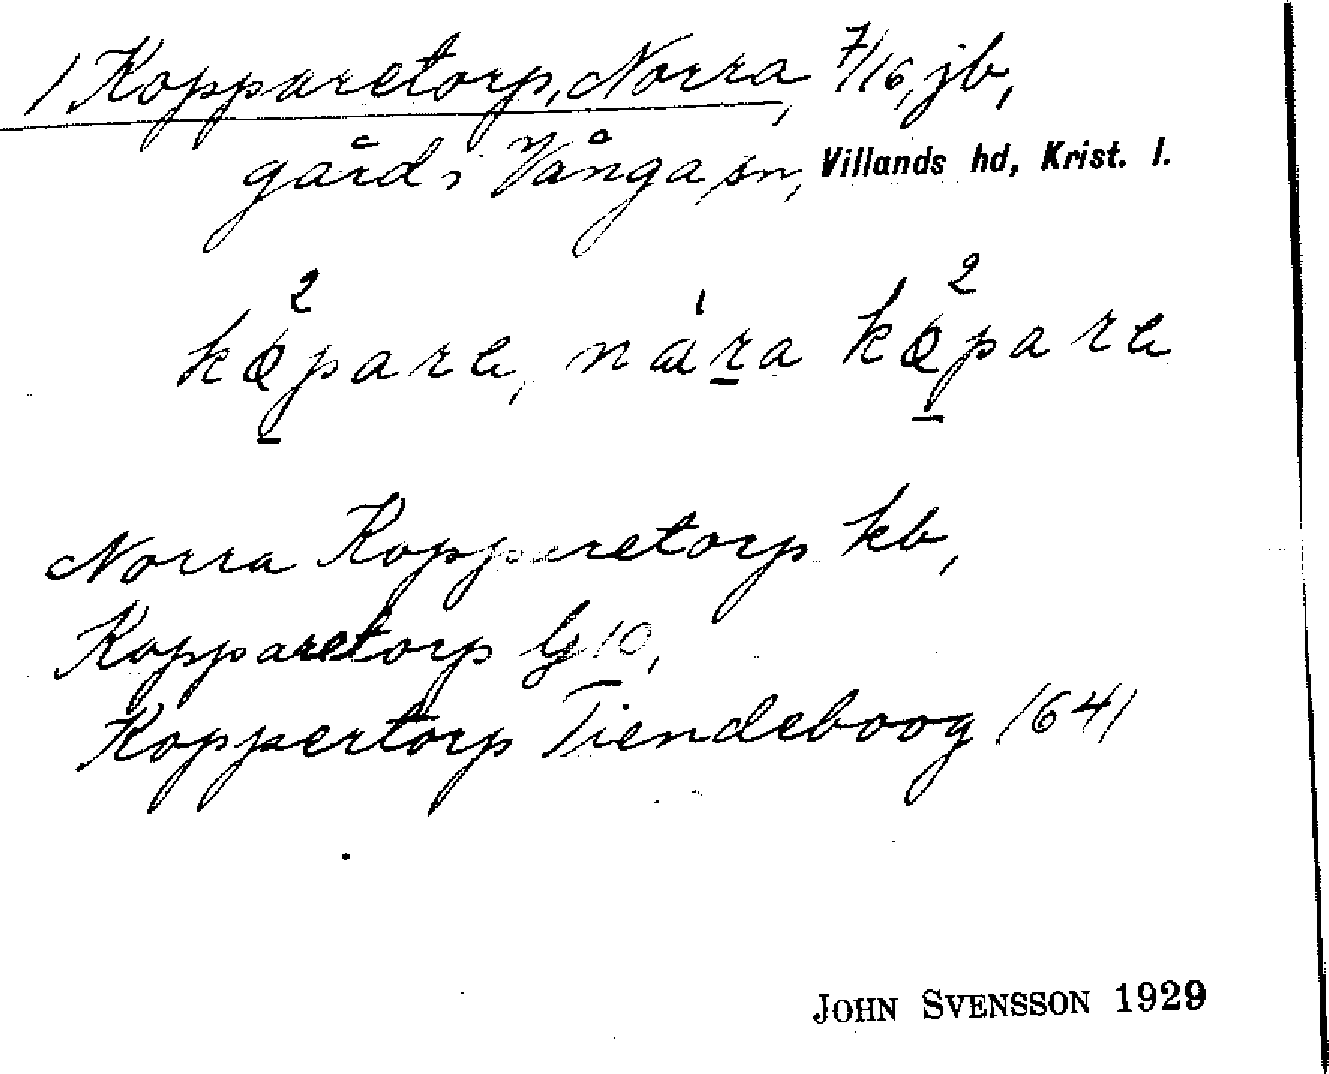 1 Kopparetorp, Norra, 7/16, jb,
gård i Vånga sn, Villands hd, Krist. l.
2 1 2
kǫpara, nára kǫpara
Norra Kopparetorp kb,
Kopparetorp G 10,
Koppertorp Tiendeboog 1641
JOHN SVENSSON 1929